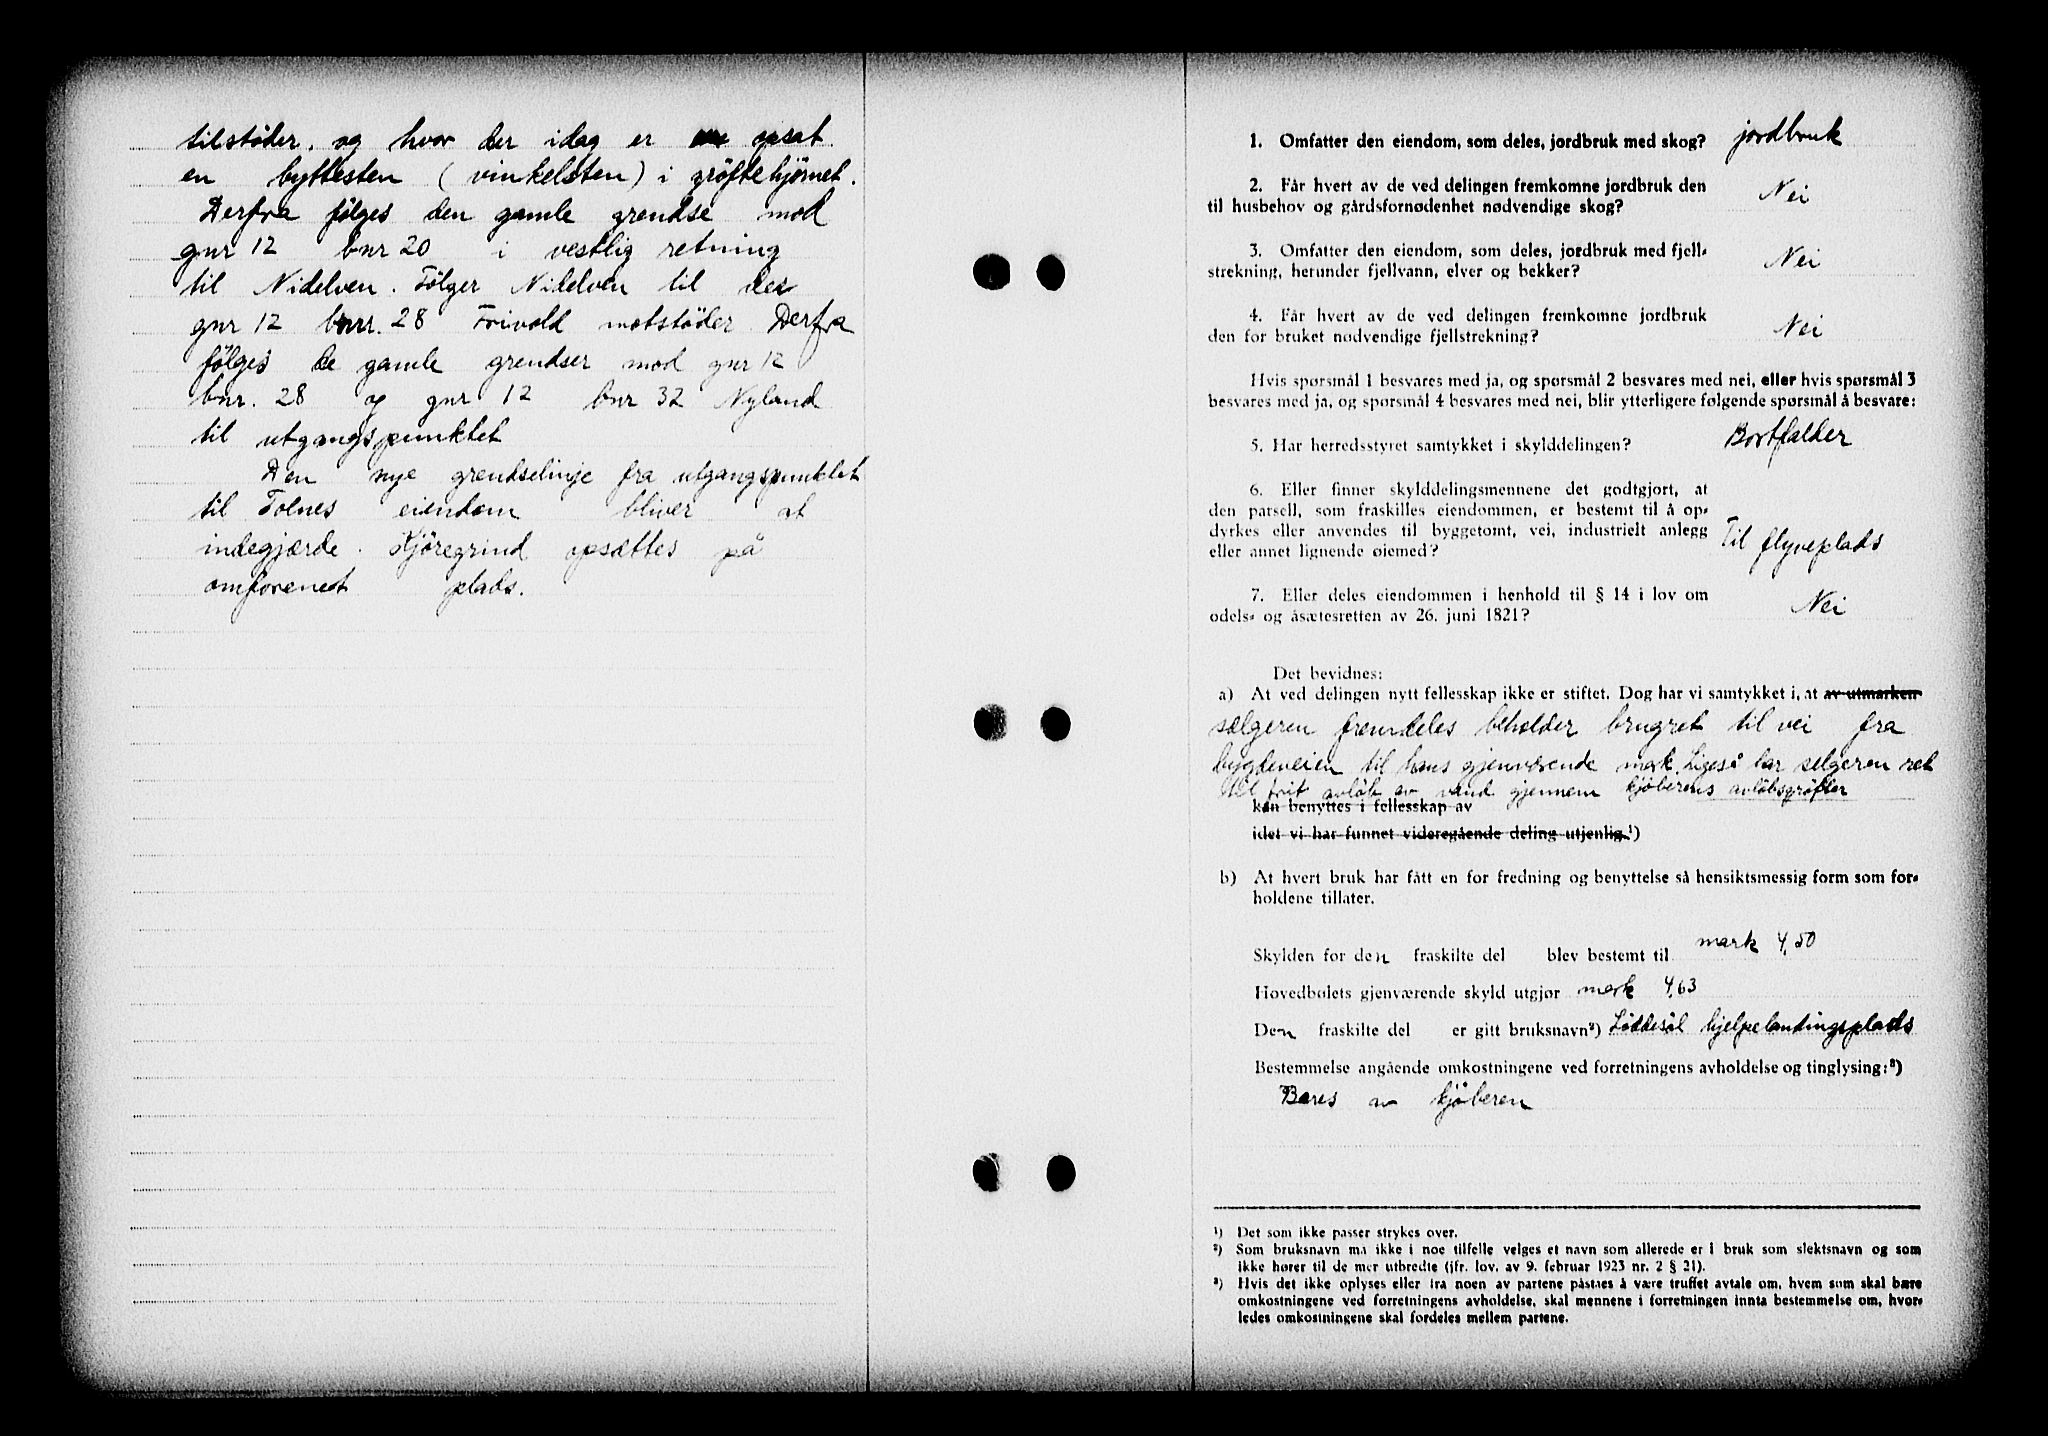 tilstøder. og hvor der idag er opsat
en byttesten (vinkelsten) i grøftehjørnet.
Derfra følges den gamle grendse mod
gnr 12 bnr 20 i vestlig retning
til Nidelven. Følger Nidelven til der
gnr 12 bnr. 28 Frivold motstøder Derfra
følges de gamle grendser mod gnr 12
bnr. 28 og gnr 12 bnr 32 Nyland
til utgangspunktet
Den nye grendselinje fra utgangspunktet
til Tolnes eiendom bliver at
indegjærde. Kjøregrind opsættes på
omforenet plads.
1. Omfatter den eiendom, som deles, jordbruk med skog? jordbruk
2. Får hvert av de ved delingen fremkomne jordbruk den
til husbehov og gårdsfornødenhet nødvendige skog? Nei
3. Omfatter den eiendom, som deles, jordbruk med fjell-
strekning, herunder fjellvann, elver og bekker? Nei
4. Får hvert av de ved delingen fremkomne jordbruk
den for bruket nødvendige fjellstrekning? Nei
Hvis spørsmål 1 besvares med ja, og spørsmål 2 besvares med nei, eller hvis spørsmål 3
besvares med ja, og spørsmål 4 besvares med nei, blir ytterligere følgende spørsmål å besvare:
5. Har herredsstyret samtykket i skylddelingen? Bortfalder
6. Eller finner skylddelingsmennene det godtgjort, at
den parsell, som fraskilles eiendommen, er bestemt til å op-
dyrkes eller anvendes til byggetomt, vei, industrielt anlegg
eller annet lignende øiemed? Til flyveplads
7. Eller deles eiendommen i henhold til § 14 i lov om
odels- og åsætesretten av 26. juni 1821? Nei
Det bevidnes:
a) At ved delingen nytt fellesskap ikke er stiftet. Dog har vi samtykket i, at av utmarken
sælgeren fremdeles beholder brugret til vei fra
bygdeveien til hans gjenværende mark. Ligeså har selgeren ret
til frit avløb av vand gjennem kjøberens avløbsgrøfter
kan benyttes i fellesskap av
idet vi har funnet videregående deling utjenlig.¹)
b) At hvert bruk har fått en for fredning og benyttelse så hensiktsmessig form som for-
holdene tillater.
Skylden for den fraskilte del blev bestemt til mark 4,50
Hovedbølets gjenværende skyld utgjør mark 4,63
Den fraskilte del er gitt bruksnavn²) Løddesøl hjelpelandingsplads
Bestemmelse angående omkostningene ved forretningens avholdelse og tinglysing:³)
Bæres av kjøberen
¹) Det som ikke passer strykes over.
²) Som bruksnavn må ikke i noe tilfelle velges et navn som allerede er i bruk som slektsnavn og som
ikke hører til de mer utbredte (jfr. lov. av 9. februar 1923 nr. 2 § 21).
³) Hvis det ikke oplyses eller fra noen av partene påstaes å være truffet avtale om, hvem som skal bære
omkostningene ved forretningens avholdelse, skal mennene i forretningen innta bestemmelse om, hvor-
ledes omkostningene skal fordeles mellem partene.